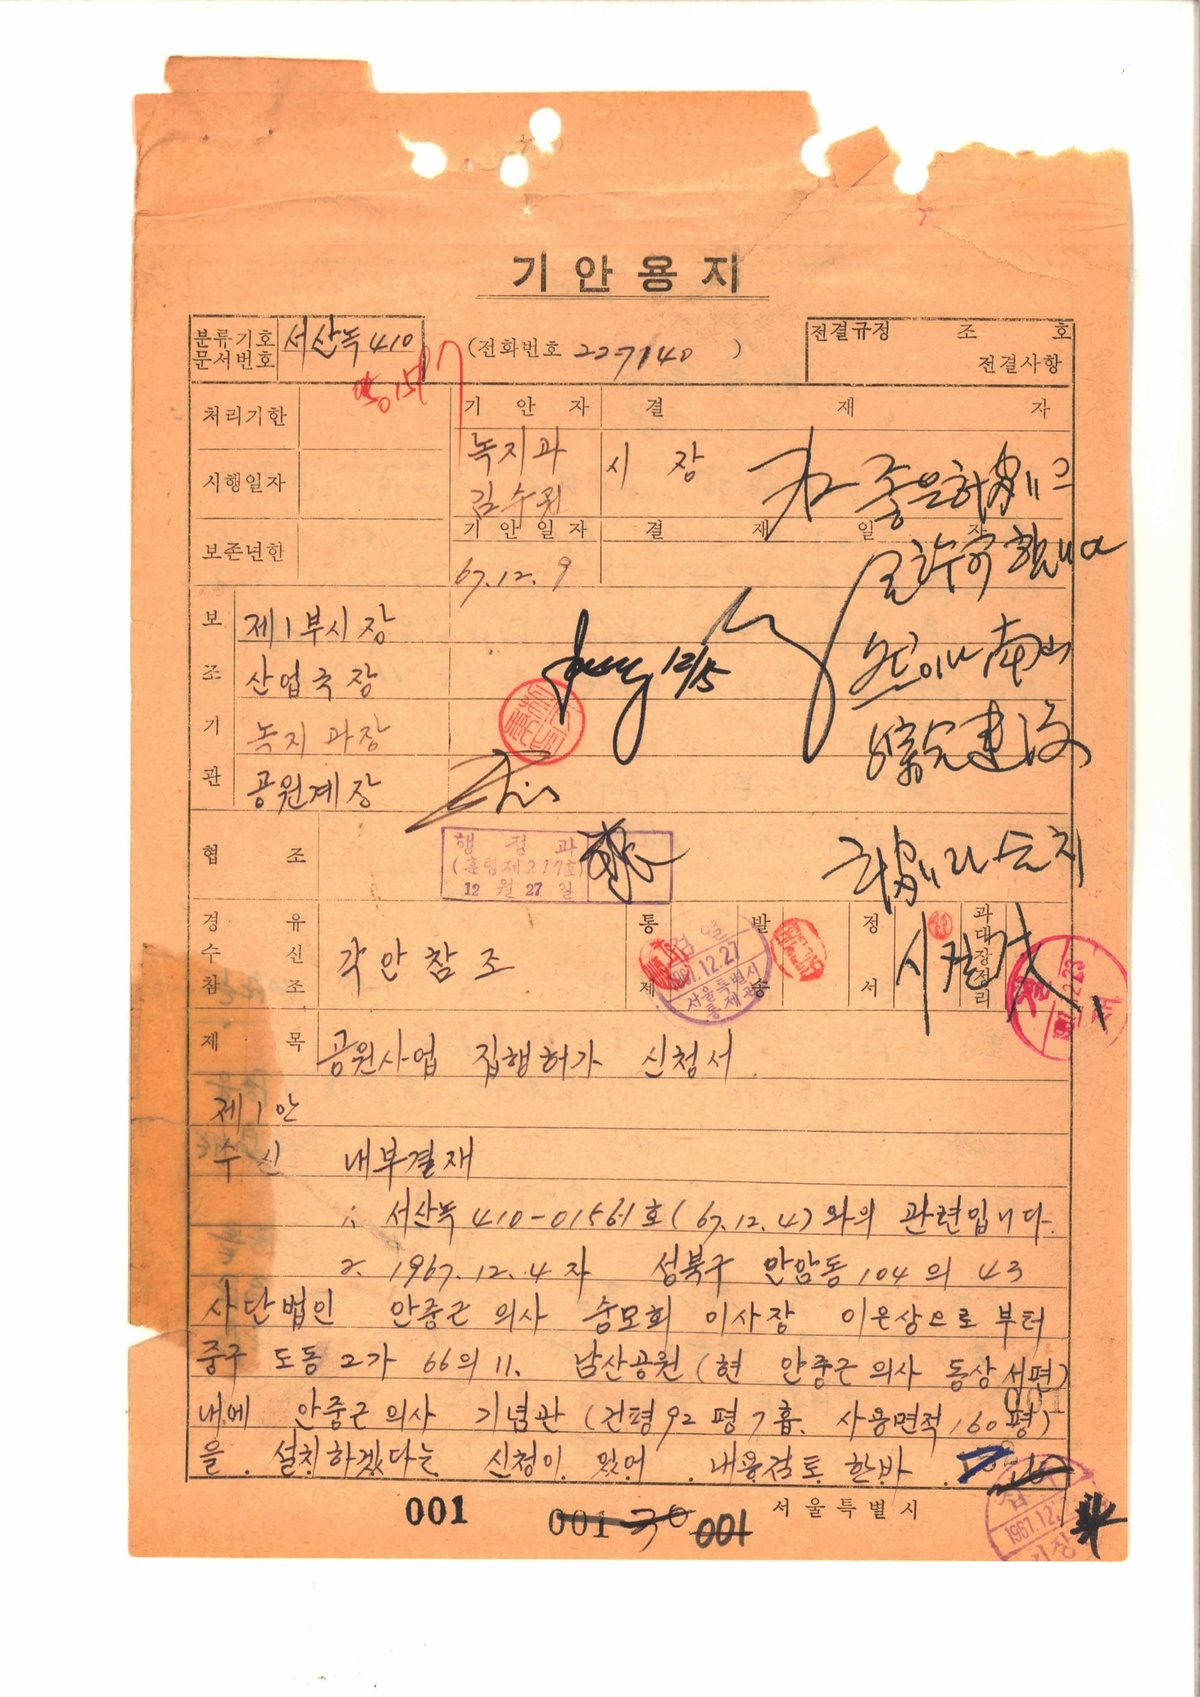 기안용지
분류기호 문서번호 서산녹 410
(전화번호 22-7140 )
전결규정 조 호
전결사항
처리기한
기안자 결재자
녹지과 김수원
시장
시행일자
기안일자 결재일자
보존년한
67.12.9
보조기관
제1부시장
산업국장
녹지과장
공원계장
12/15
협조
행정과
(훈령제217호)
12월 27일
경유 수신 참조
각안참조
통제
검열
1967.12.27
서울특별시
통제관
발송
정서
과대장정리
제목 공원사업 집행허가 신청서
제1안
수신 내부결재
1. 서산녹 410-01561호(67.12.4)와의 관련입니다.
2. 1967.12.4자 성북구 안암동 104의 43
사단법인 안중근 의사 숭모회 이사장 이은상으로 부터
중구 도동 2가 66의 11. 남산공원(현 안중근 의사 동상 서편)
내에 안중근 의사 기념관(건평 92평 7홉. 사용면적 160평)
을 설치하겠다는 신청이 있어 내용검토 한바
001
001
서울특별시